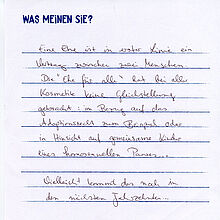 WAS MEINEN SIE?
Eine Ehe ist in erster Linie ein
Vertrag zwischen zwei Menschen.
Die "Ehe für alle" hat bei aller
Kosmetik keine Gleichstellung
gebracht: im Bezug auf das
Adoptionsrecht zum Beispiel oder
in Hinsicht auf gemeinsame Kinder
eines homosexuellen Paares...
Vielleicht kommt das noch in
den nächsten Jahrzehnten...